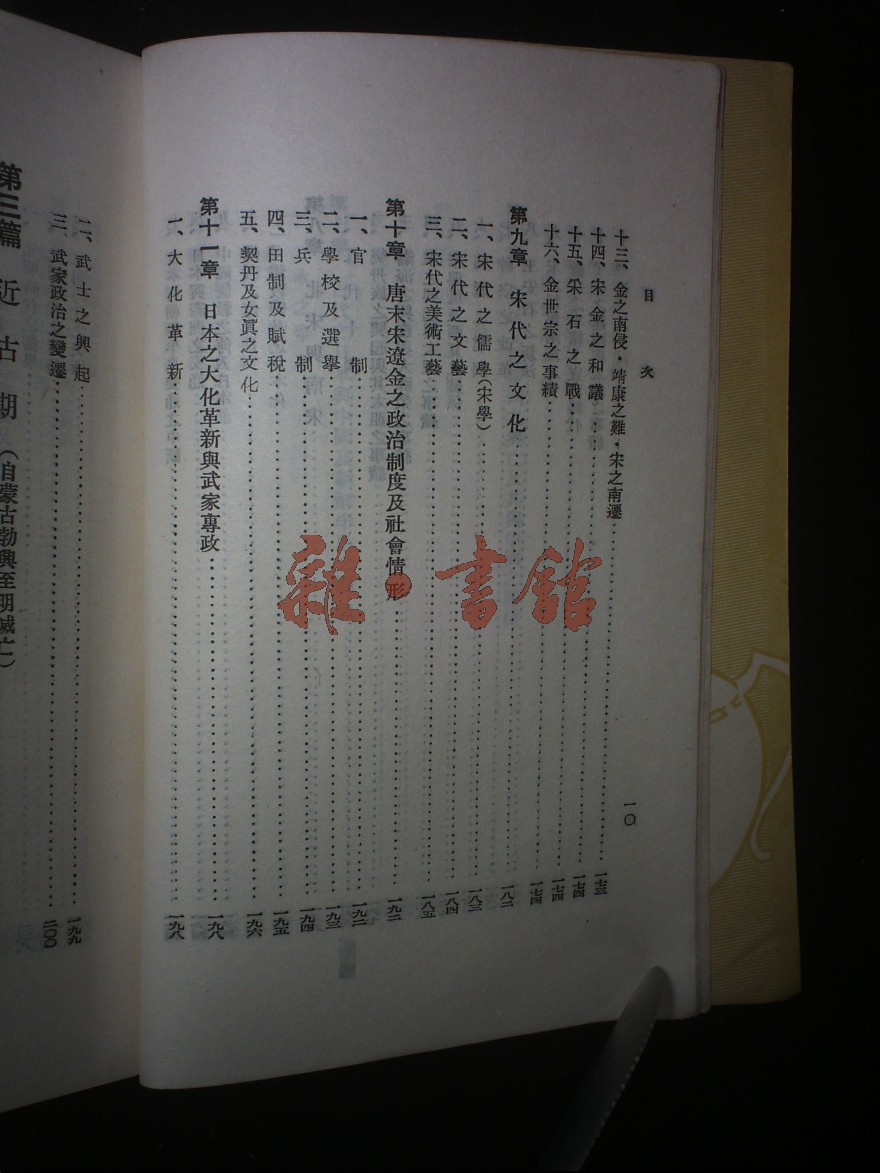 目次
一〇
十三、金之南侵・靖康之難・宋之南遷 一七三
十四、宋金之和議 一七四
十五、采石之戰 一七四
十六、金世宗之事績 一七四
第九章 宋代之文化 一八二
一、宋代之儒學(宋學) 一八三
二、宋代之文藝 一八四
三、宋代之美術工藝 一八五
第十章 唐末宋遼金之政治制度及社會情形 一九二
一、官制 一九二
二、學校及選舉 一九三
三、兵制 一九四
四、田制及賦稅 一九五
五、契丹及女眞之文化 一九六
第十一章 日本之大化革新與武家專政 一九八
一、大化革新 一九八
二、武士之興起 一九九
三、武家政治之變遷 二〇〇
第三篇 近古期(自蒙古勃興至明滅亡)
雜・書館